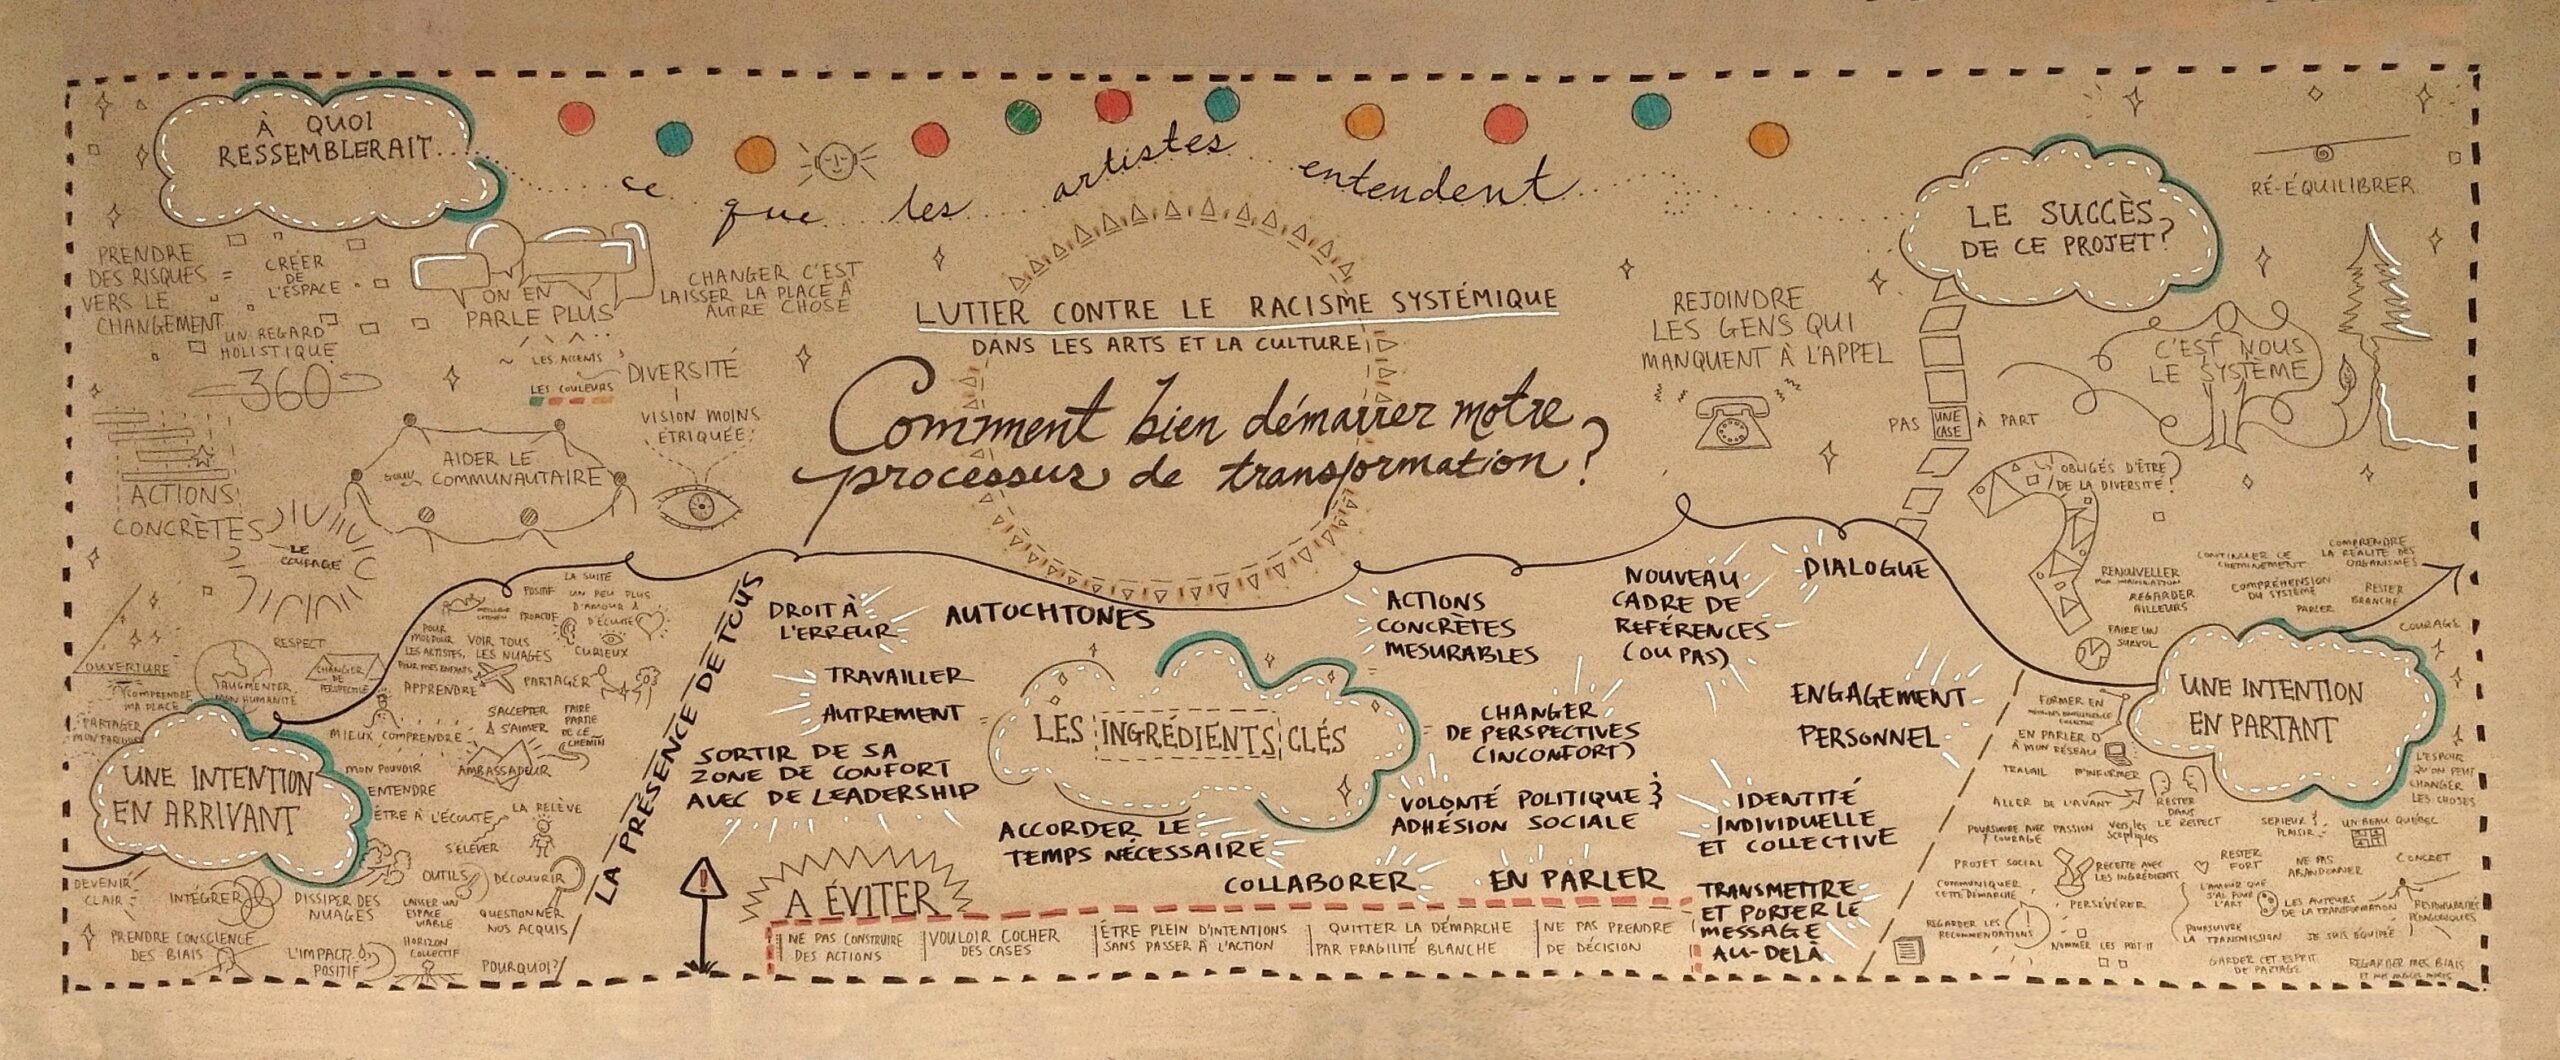 À QUOI
RESSEMBLERAIT...
ce que les artistes entendent
LE SUCCÈS
DE CE PROJET?
RÉ-ÉQUILIBRER
PRENDRE
DES RISQUES =
VERS LE
CHANGEMENT
CRÉER
DE
L'ESPACE
UN REGARD
HOLISTIQUE
360
ON EN
PARLE PLUS
LES ACCENTS
LES COULEURS
CHANGER C'EST
LAISSER LA PLACE À
AUTRE CHOSE
DIVERSITÉ
VISION MOINS
ÉTRIQUÉE
ACTIONS
CONCRÈTES
LE
COURAGE
AIDER LE
COMMUNAUTAIRE
LUTTER CONTRE LE RACISME SYSTÉMIQUE
DANS LES ARTS ET LA CULTURE
Comment bien démarrer notre
processus de transformation?
REJOINDRE
LES GENS QUI
MANQUENT À L'APPEL
PAS UNE CASE À PART
C'EST NOUS
LE SYSTÈME
OBLIGÉS D'ÊTRE
DE LA DIVERSITÉ?
UNE INTENTION
EN ARRIVANT
OUVERTURE
COMPRENDRE
MA PLACE
RESPECT
AUGMENTER
MON HUMANITÉ
CHANGER
DE
PERSPECTIVE
POSITIF
PROACTIF
LA SUITE
UN PEU PLUS
D'AMOUR &
D'ÉCOUTE
CURIEUX
VOIR TOUS
LES NUAGES
LES ARTISTES,
POUR MES ENFANTS
APPRENDRE
PARTAGER
MIEUX COMPRENDRE
S'ACCEPTER
& S'AIMER
FAIRE
PARTIE
DE LE
CHEMIN
MON POUVOIR
AMBASSADEUR
ENTENDRE
ÊTRE À L'ÉCOUTE
LA RELÈVE
S'ÉLEVER
OUTILS
DÉCOUVRIR
DEVENIR
CLAIR
INTÉGRER
DISSIPER DES
NUAGES
LAISSER UN
ESPACE
VIABLE
QUESTIONNER
NOS ACQUIS
PRENDRE CONSCIENCE
DES BIAIS
L'IMPACT
POSITIF
HORIZON
COLLECTIF
POURQUOI?
LA PRÉSENCE DE TOUS
LES INGRÉDIENTS CLÉS
DROIT À
L'ERREUR
AUTOCHTONES
TRAVAILLER
AUTREMENT
SORTIR DE SA
ZONE DE CONFORT
AVEC DE LEADERSHIP
ACCORDER LE
TEMPS NÉCESSAIRE
ACTIONS
CONCRÈTES
MESURABLES
NOUVEAU
CADRE DE
RÉFÉRENCES
(OU PAS)
DIALOGUE
CHANGER
DE PERSPECTIVES
(INCONFORT)
ENGAGEMENT
PERSONNEL
VOLONTÉ POLITIQUE &
ADHÉSION SOCIALE
IDENTITÉ
INDIVIDUELLE
ET COLLECTIVE
COLLABORER
EN PARLER
TRANSMETTRE
ET PORTER LE
MESSAGE
AU-DELÀ
!
A ÉVITER
NE PAS CONSTRUIRE
DES ACTIONS
VOULOIR COCHER
DES CASES
ÊTRE PLEIN D'INTENTIONS
SANS PASSER À L'ACTION
QUITTER LA DÉMARCHE
PAR FRAGILITÉ BLANCHE
NE PAS PRENDRE
DE DÉCISION
UNE INTENTION
EN PARTANT
RENOUVELLER
REGARDER
AILLEURS
FAIRE UN
SURVOL
CONTINUER CE
CHEMINEMENT
COMPRENDRE
LA RÉALITÉ DES
ORGANISMES
COMPRÉHENSION
DU SYSTÈME
RESTER
BRANCHÉ
PARLER
COURAGE
FORMER EN
EN PARLER
À MON RÉSEAU
TRAVAIL
M'INFORMER
ALLER DE L'AVANT
RESTER
DANS
LE RESPECT
POURSUIVRE AVEC PASSION
& COURAGE
vers les
sceptiques
SÉRIEUX &
PLAISIR
UN BEAU QUÉBEC
L'ESPOIR
QU'ON PEUT
CHANGER
LES CHOSES
PROJET SOCIAL
RECETTE AVEC
LES INGRÉDIENTS
RESTER
FORT
NE PAS
ABANDONNER
CONCRET
COMMUNIQUER
CETTE DÉMARCHE
PERSÉVÉRER
L'AMOUR QUE
J'AI POUR
L'ART
LES AUTEURS
DE LA TRANSFORMATION
REGARDER LES
RECOMMENDATIONS
NOMMER LES POST-IT
POURSUIVRE
LA TRANSMISSION
JE SUIS ÉQUIPÉE
GARDER CET ESPRIT
DE PARTAGE
REGARDER MES BIAIS